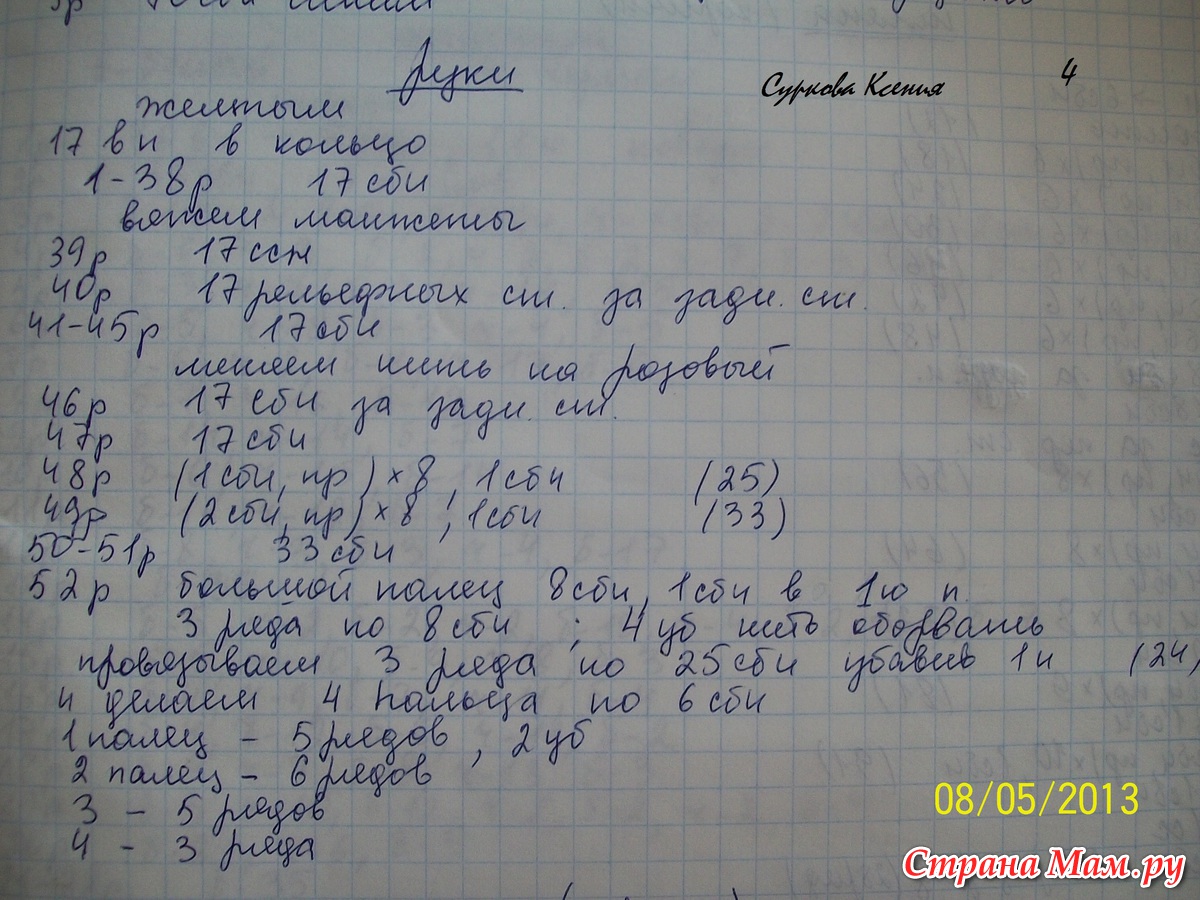 Руки
Суркова Ксения 4
желтым
17 вп в кольцо
1-38р 17 сбн
вяжем манжеты
39р 17 ссн
40р 17 рельефных ст. за задн. ст.
41-45р 17 сбн
меняем нить на розовый
46р 17 сбн за задн. ст.
47р 17 сбн
48р (1 сбн, пр) × 8, 1 сбн (25)
49р (2 сбн, пр) × 8, 1 сбн (33)
50-51р 33 сбн
52р большой палец 8 сбн, 1 сбн в 1ю п.
3 ряда по 8 сбн ; 4 уб нить оборвать
провязываем 3 ряда по 25 сбн убавив 1п (24)
и делаем 4 пальца по 6 сбн
1 палец - 5 рядов, 2 уб
2 палец - 6 рядов
3 - 5 рядов
4 - 3 ряда
08/05/2013
Страна Мам.ру